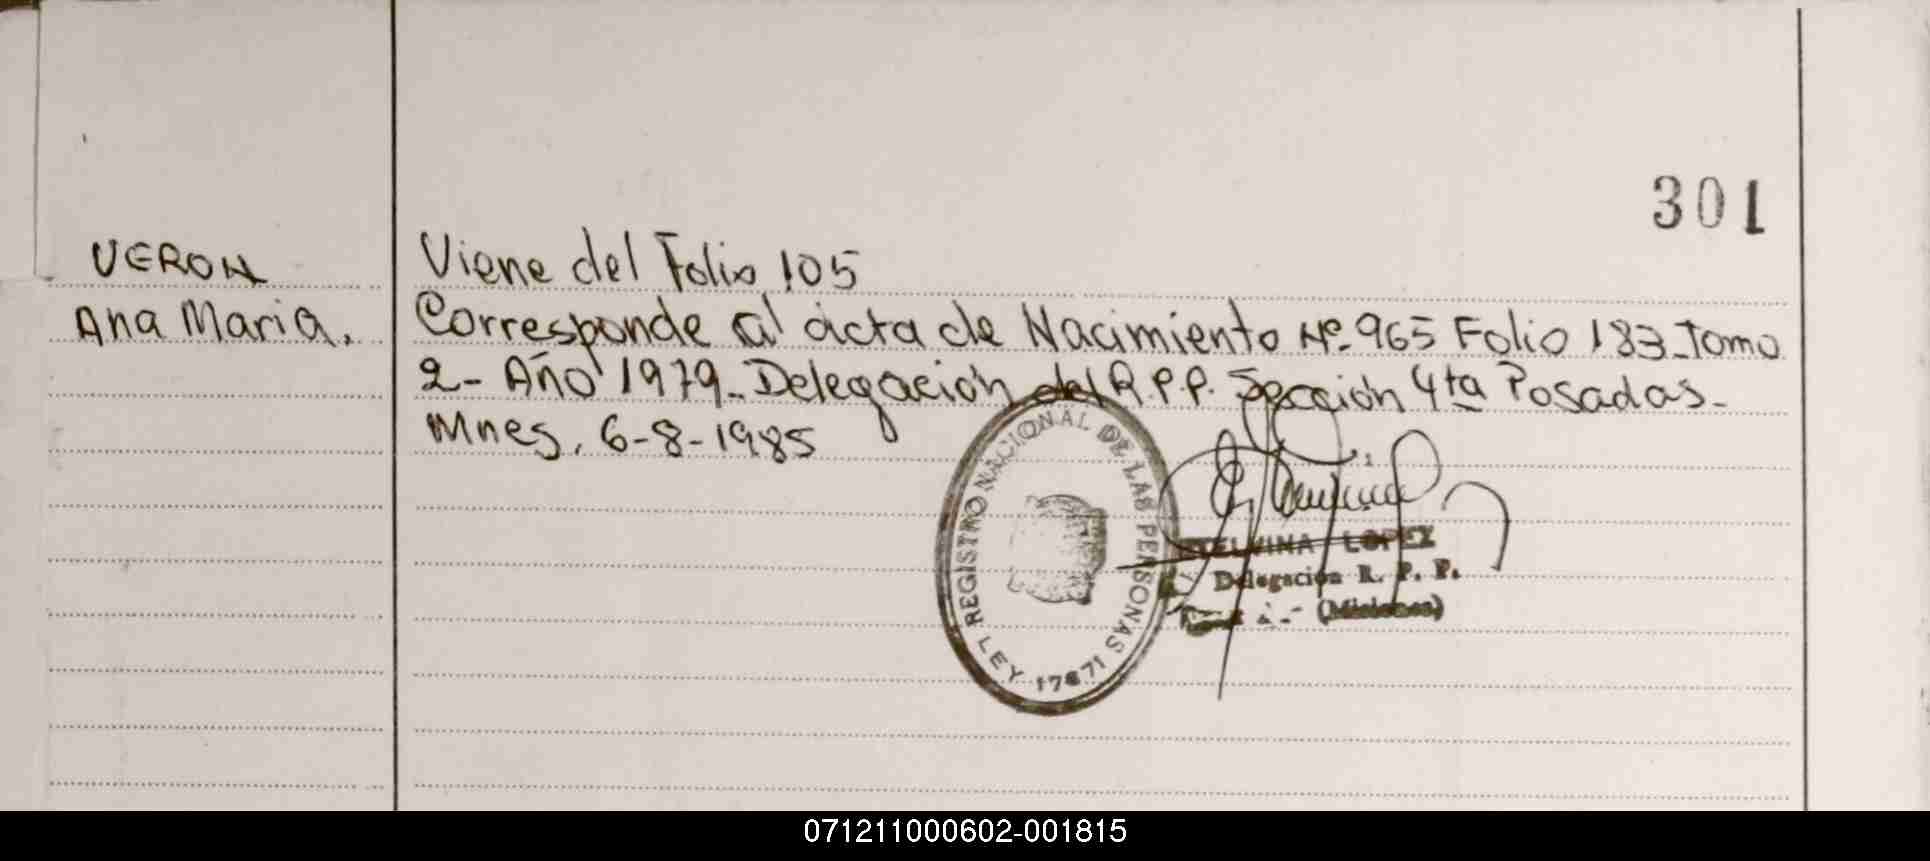 301
VERON
Ana Maria.
Viene del Folio 105
Corresponde al acta de Nacimiento Nº 965 Folio 183-Tomo
2- Año 1979-Delegación del R.P.P. Sección 4ta Posadas-
Mnes, 6-8-1985
REGISTRO NACIONAL DE LAS PERSONAS
LEY 17671
LOPEZ
Delegación R. P. P.
(Misiones)
071211000602-001815